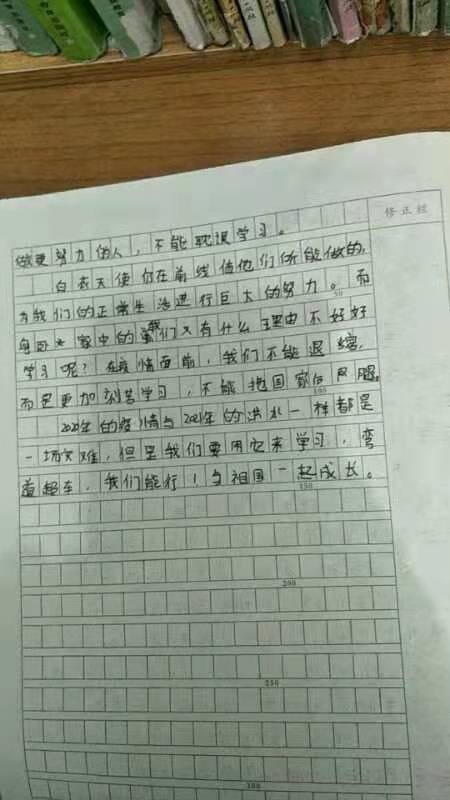 修正栏
做更努力的人，不能耽误学习。
白衣天使们在前线做他们所能做的，
为我们的正常生活进行巨大的努力。而
身处家中的我们又有什么理由不好好
学习呢？在疫情面前，我们不能退缩，
而是更加刻苦学习，不能拖国家后腿。
2020年的疫情与2021年的洪水一样都是
一场灾难，但是我们要用它来学习，弯
道超车，我们能行！与祖国一起成长。
50
100
150
200
250
300